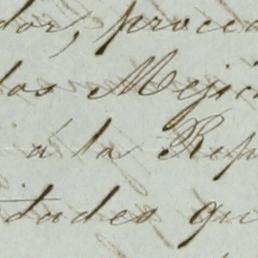 dor, proced
los Mejic
á la Rep
idades qu